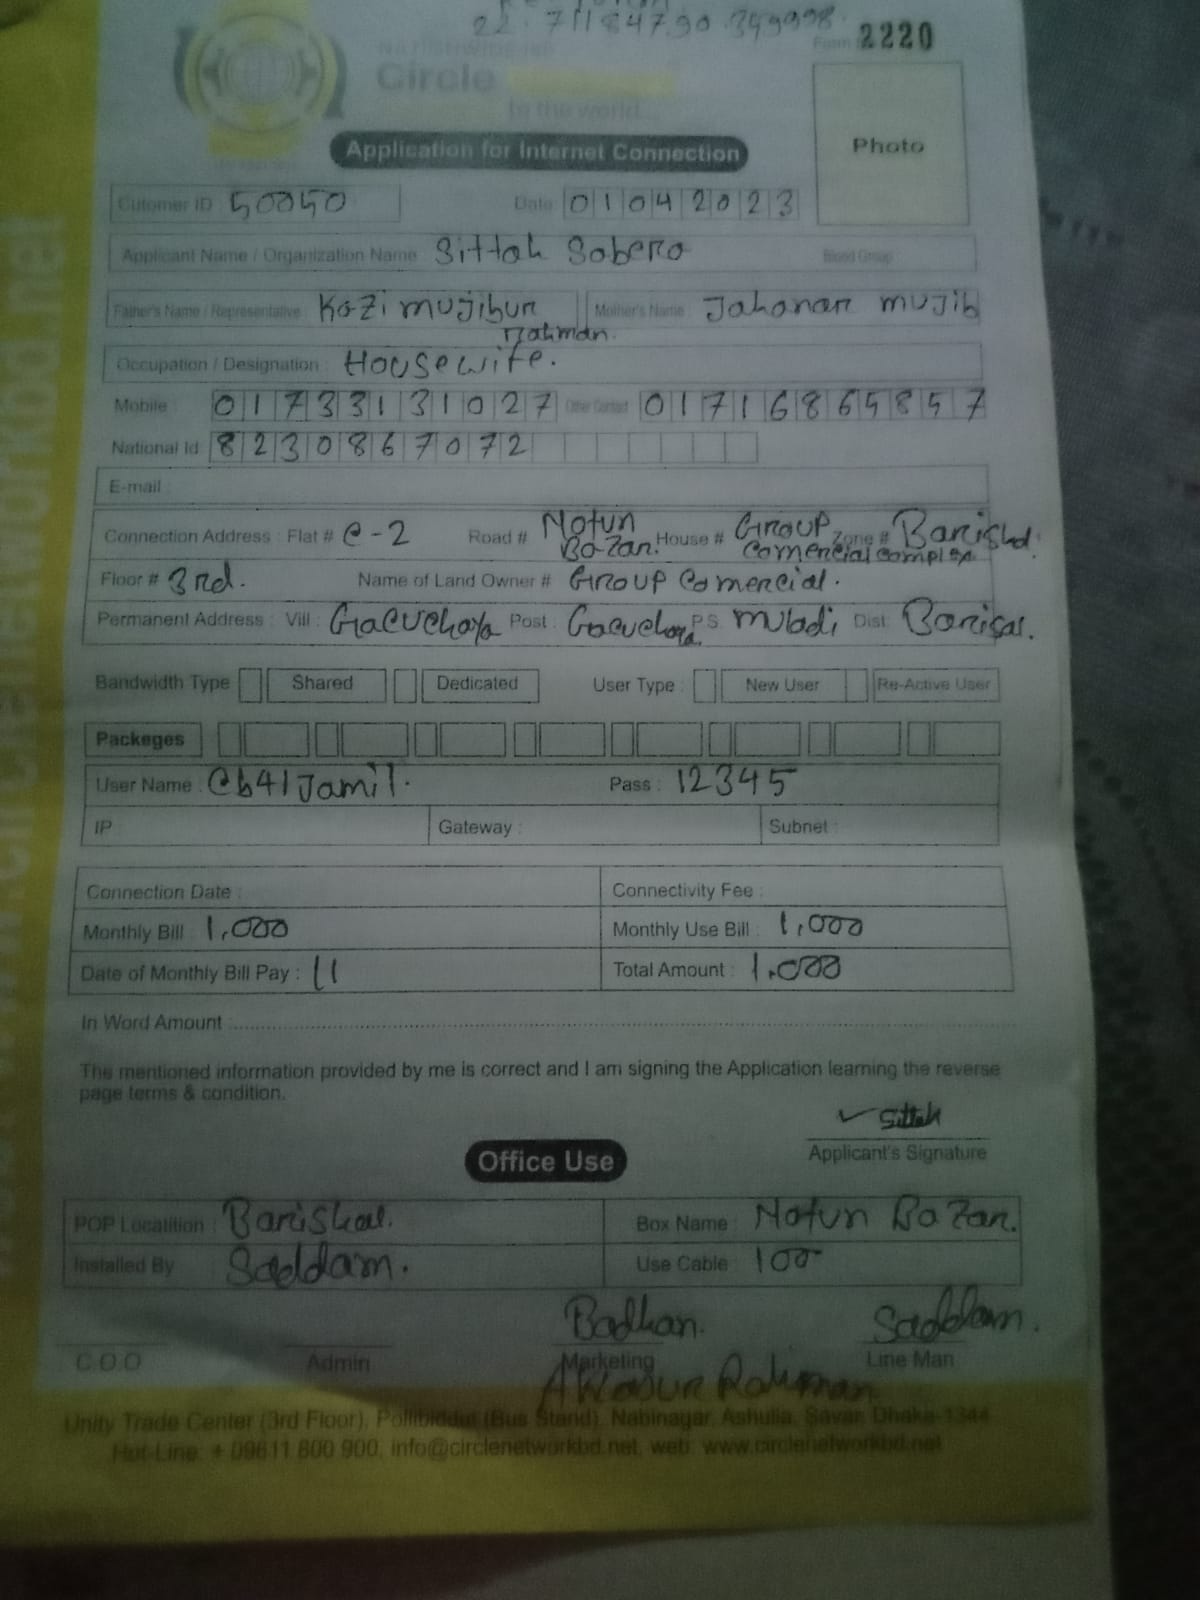 22.71184790 349998
Form 2220
Circle
to the world...
Application for Internet Connection
Photo
Cutomer ID 50050 Date 01042023
Applicant Name / Organization Name Sittah Sabera Blood Group
Father's Name / Representative : Kazi mujibur Rahman. Mother's Name : Jahanar mujib
Occupation / Designation : Housewife.
Mobile : 01733131027 Other Contact 01716865857
National Id 8230867072
E-mail :
Connection Address : Flat # C-2 Road # Notun Bazar. House # Group Comercial Complex Zone # Barishal.
Floor # 3rd. Name of Land Owner # Group Comercial.
Permanent Address : Vill : Gacuchaya Post : Gacuchaya P.S. muladi Dist: Barisal.
Bandwidth Type Shared Dedicated User Type : New User Re-Active User
Packeges
User Name : Cb41Jamil. Pass : 12345
IP Gateway : Subnet :
Connection Date : Connectivity Fee :
Monthly Bill : 1,000 Monthly Use Bill : 1,000
Date of Monthly Bill Pay : 11 Total Amount : 1,000
In Word Amount :
The mentioned information provided by me is correct and I am signing the Application learning the reverse
page terms & condition.
Sittah
Applicant's Signature
Office Use
POP Locatition : Barishal. Box Name : Notun Bazar.
Installed By Saddam. Use Cable 100
Badhan. Saddam.
C.O.O Admin Marketing Line Man
Rahman
Unity Trade Center (3rd Floor), Pollibiddut (Bus Stand), Nabinagar, Ashulia, Savar, Dhaka-1344
Hot-Line: + 09611 800 900, info@circlenetworkbd.net, web: www.circlenetworkbd.net
www.circlenetworkbd.net